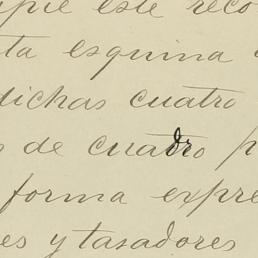 este reco
esquina
dichas cuatro
de cuadro
forma expre
es y tasadores